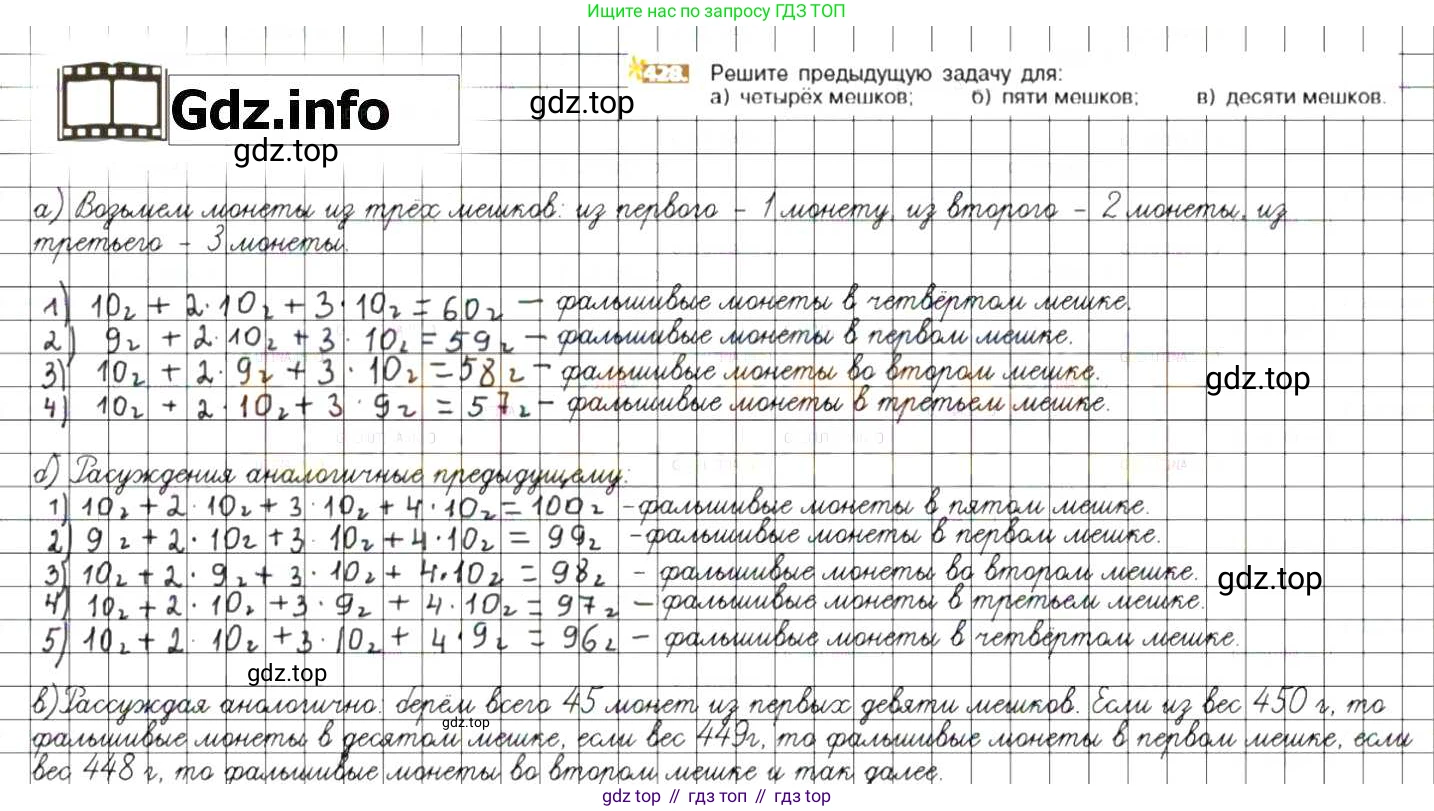 Ищите нас по запросу ГДЗ ТОП
Gdz.info
gdz.top
428. Решите предыдущую задачу для:
а) четырёх мешков; б) пяти мешков; в) десяти мешков.
gdz.top
а) Возьмем монеты из трёх мешков: из первого - 1 монету, из второго - 2 монеты, из
третьего - 3 монеты.
1) 10г + 2·10г + 3·10г = 60г — фальшивые монеты в четвёртом мешке.
2) 9г + 2·10г + 3·10г = 59г — фальшивые монеты в первом мешке.
3) 10г + 2·9г + 3·10г = 58г — фальшивые монеты во втором мешке.
gdz.top
4) 10г + 2·10г + 3·9г = 57г — фальшивые монеты в третьем мешке.
б) Расуждения аналогичные предыдущему:
1) 10г + 2·10г + 3·10г + 4·10г = 100г - фальшивые монеты в пятом мешке.
2) 9г + 2·10г + 3·10г + 4·10г = 99г - фальшивые монеты в первом мешке.
3) 10г + 2·9г + 3·10г + 4·10г = 98г - фальшивые монеты во втором мешке.
gdz.top
4) 10г + 2·10г + 3·9г + 4·10г = 97г — фальшивые монеты в третьем мешке.
5) 10г + 2·10г + 3·10г + 4·9г = 96г — фальшивые монеты в четвёртом мешке.
gdz.top
в) Рассуждая аналогично: берём всего 45 монет из первых девяти мешков. Если из вес 450 г, то
gdz.top
фальшивые монеты в десятом мешке, если вес 449г, то фальшивые монеты в первом мешке, если
вес 448 г, то фальшивые монеты во втором мешке и так далее.
gdz top // гдз топ // gdz top